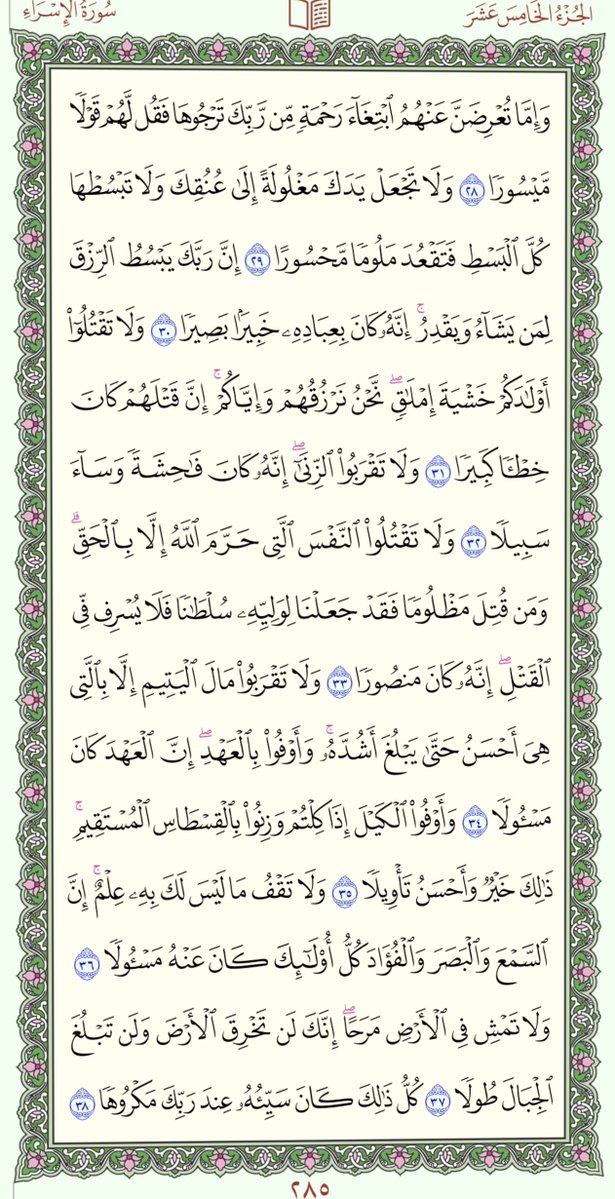 الجُزْءُ الخَامِسَ عَشَرَ
سُورَةُ الإِسْرَاءِ
وَإِمَّا تُعْرِضَنَّ عَنْهُمُ ٱبْتِغَآءَ رَحْمَةٖ مِّن رَّبِّكَ تَرْجُوهَا فَقُل لَّهُمْ قَوْلٗا
مَّيْسُورٗا ٢٨ وَلَا تَجْعَلْ يَدَكَ مَغْلُولَةً إِلَىٰ عُنُقِكَ وَلَا تَبْسُطْهَا
كُلَّ ٱلْبَسْطِ فَتَقْعُدَ مَلُومٗا مَّحْسُورًا ٢٩ إِنَّ رَبَّكَ يَبْسُطُ ٱلرِّزْقَ
لِمَن يَشَآءُ وَيَقْدِرُۚ إِنَّهُۥ كَانَ بِعِبَادِهِۦ خَبِيرَۢا بَصِيرٗا ٣٠ وَلَا تَقْتُلُوٓا۟
أَوْلَٰدَكُمْ خَشْيَةَ إِمْلَٰقٖۖ نَّحْنُ نَرْزُقُهُمْ وَإِيَّاكُمْۚ إِنَّ قَتْلَهُمْ كَانَ
خِطْـٔٗا كَبِيرٗا ٣١ وَلَا تَقْرَبُوا۟ ٱلزِّنَىٰٓۖ إِنَّهُۥ كَانَ فَٰحِشَةٗ وَسَآءَ
سَبِيلٗا ٣٢ وَلَا تَقْتُلُوا۟ ٱلنَّفْسَ ٱلَّتِي حَرَّمَ ٱللَّهُ إِلَّا بِٱلْحَقِّۗ
وَمَن قُتِلَ مَظْلُومٗا فَقَدْ جَعَلْنَا لِوَلِيِّهِۦ سُلْطَٰنٗا فَلَا يُسْرِف فِّي
ٱلْقَتْلِۖ إِنَّهُۥ كَانَ مَنصُورٗا ٣٣ وَلَا تَقْرَبُوا۟ مَالَ ٱلْيَتِيمِ إِلَّا بِٱلَّتِي
هِيَ أَحْسَنُ حَتَّىٰ يَبْلُغَ أَشُدَّهُۥۚ وَأَوْفُوا۟ بِٱلْعَهْدِۖ إِنَّ ٱلْعَهْدَ كَانَ
مَسْـُٔولٗا ٣٤ وَأَوْفُوا۟ ٱلْكَيْلَ إِذَا كِلْتُمْ وَزِنُوا۟ بِٱلْقِسْطَاسِ ٱلْمُسْتَقِيمِۚ
ذَٰلِكَ خَيْرٞ وَأَحْسَنُ تَأْوِيلٗا ٣٥ وَلَا تَقْفُ مَا لَيْسَ لَكَ بِهِۦ عِلْمٌۚ إِنَّ
ٱلسَّمْعَ وَٱلْبَصَرَ وَٱلْفُؤَادَ كُلُّ أُو۟لَٰٓئِكَ كَانَ عَنْهُ مَسْـُٔولٗا ٣٦
وَلَا تَمْشِ فِي ٱلْأَرْضِ مَرَحًاۖ إِنَّكَ لَن تَخْرِقَ ٱلْأَرْضَ وَلَن تَبْلُغَ
ٱلْجِبَالَ طُولٗا ٣٧ كُلُّ ذَٰلِكَ كَانَ سَيِّئُهُۥ عِندَ رَبِّكَ مَكْرُوهٗا ٣٨
٢٨٥